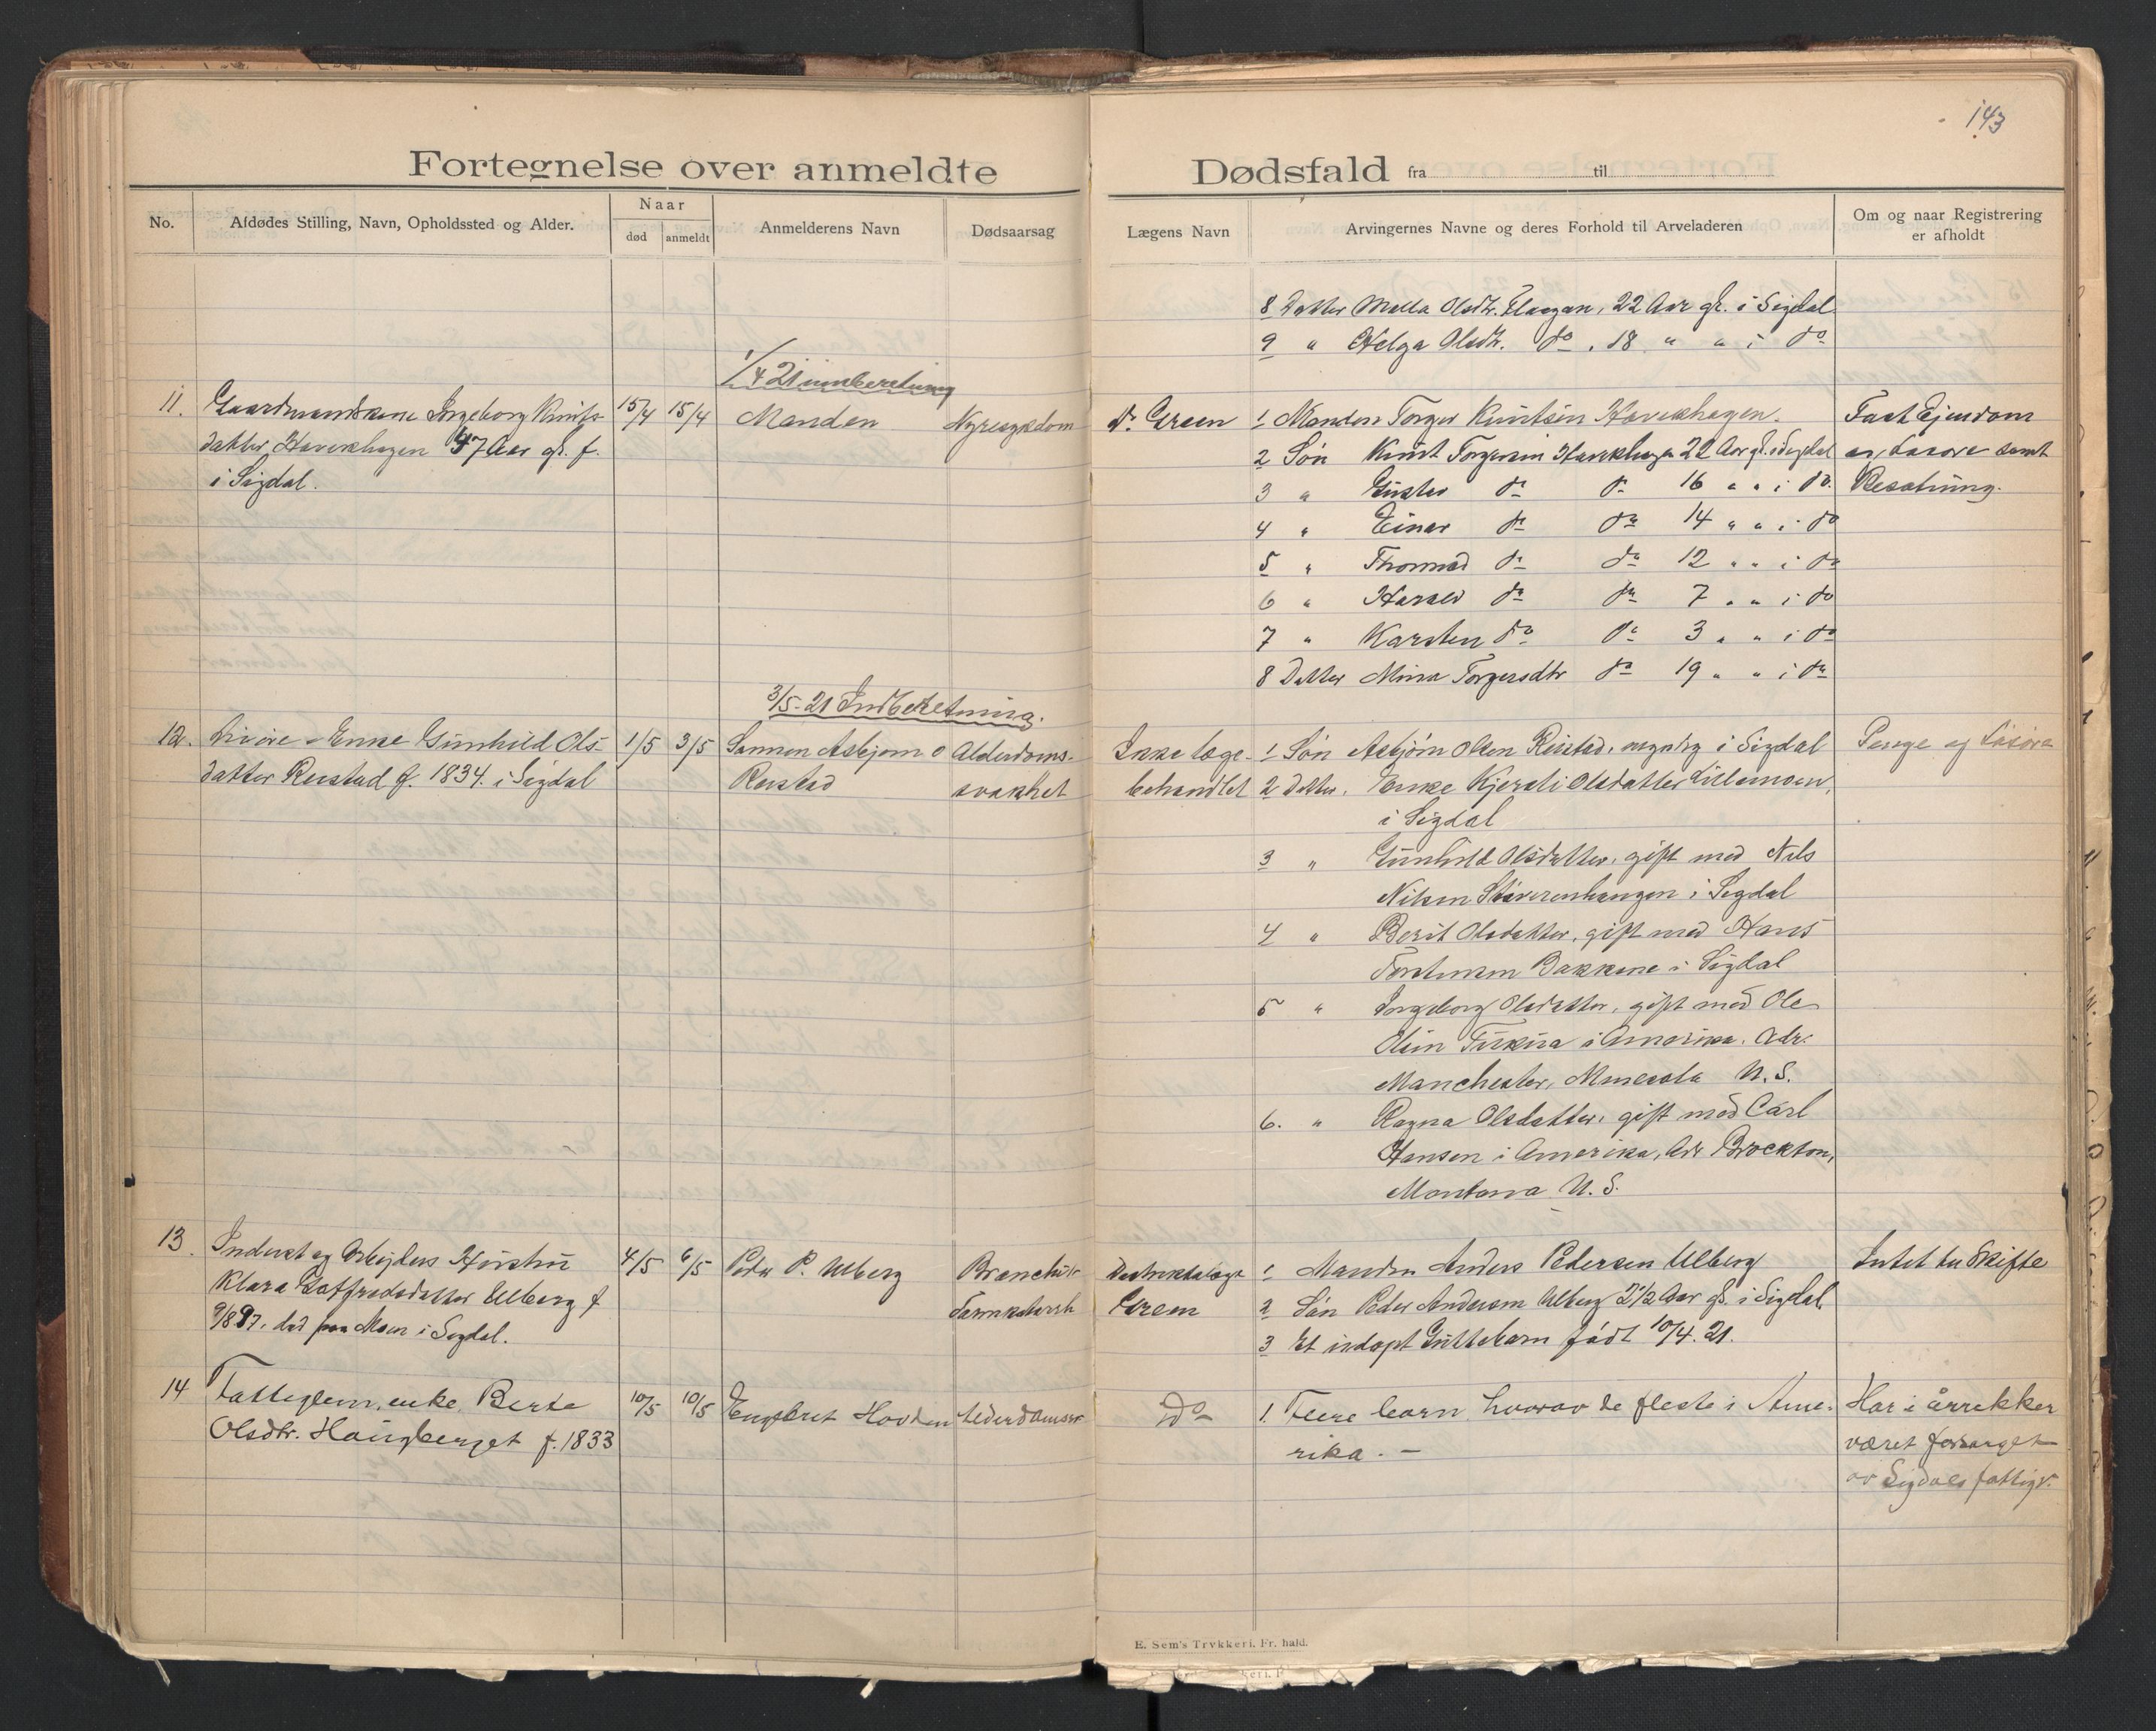 143
Fortegnelse over anmeldte Dødsfald fra til
No.
Afdødes Stilling, Navn, Opholdssted og Alder.
Naar
død
anmeldt
Anmelderens Navn
Dødsaarsag
Lægens Navn
Arvingernes Navne og deres Forhold til Arveladeren
Om og naar Registrering
er afholdt
8 Datter Olsdtr. 22 Aar gl. i Sigdal
9 " Helga Olsdtr. do . 18 " " i do
1/4 21 innberetning
11. Gaardmandskone Ingeborg Knuts-
datter Haverhagen 47 Aar gl. f.
i Sigdal.
15/4 15/4 Manden Nyresygdom
dr. Green
1 Manden Torger Knutsen Haverhagen.
2 Søn Knut Torgersen Haverhagen 22 Aar gl. i Sigdal
3 " Gustav do do 16 " " i do.
4 " Einar do do 14 " " i do
5 " Thomas do do 12 " " i do
6 " Harald do do 7 " " i do
7 " Karsten do do 3 " " i do
8 Datter Minna Torgersdtr do 19 " " i do
Fast Ejendom
og Løsøre samt
Besætning.
3/5-21 Indberetning.
12. Enke Gunhild Ols-
datter Reistad f. 1834. i Sigdal
1/5 3/5 Sønnen Asbjørn O
Reistad
Alderdoms-
svakhet
Ikke læge-
behandlet
1 Søn Asbjørn Olsen Reistad, myndig i Sigdal
2 Datter, Enke Kjersti Olsdatter Lillemoen,
i Sigdal
3 " Gunhild Olsdatter, gift med Nils
Nilsen i Sigdal
4 " Berit Olsdatter, gift med Hans
Torstensen Bakkene i Sigdal
5 " Ingeborg Olsdatter, gift med Ole
Olsen i Amerika. Adr.
Manchester, Minesota U.S.
6. " Ragna Olsdatter, gift med Carl
Hansen i Amerika, Adr Brockton,
Montana U.S.
Penge og Løsøre
13. Inderst og Arbeiders Hustru
Klara Gotfredsdatter Ulberg f
9/8 97, død paa Moen i Sigdal.
4/5 6/5 Peder P. Ulberg
Distriktslæge
Green
1 Manden Anders Pedersen Ulberg
2 Søn Peder Andersen Ulberg 2 1/2 Aar gl. i Sigdal
3 Et udøpt Guttebarn født 10/4. 21.
Intet til Skifte
14 Fattiglem, enke Berte
Olsdtr. Haugberget f. 1833
10/5 10/5 Engebret Hovden
Do
1. Flere barn hvorav de fleste i Ame-
rika. –
Har i årrekker
været forsørget
av Sigdals fattigv.
E. Sem's Trykkeri. Fr. hald.